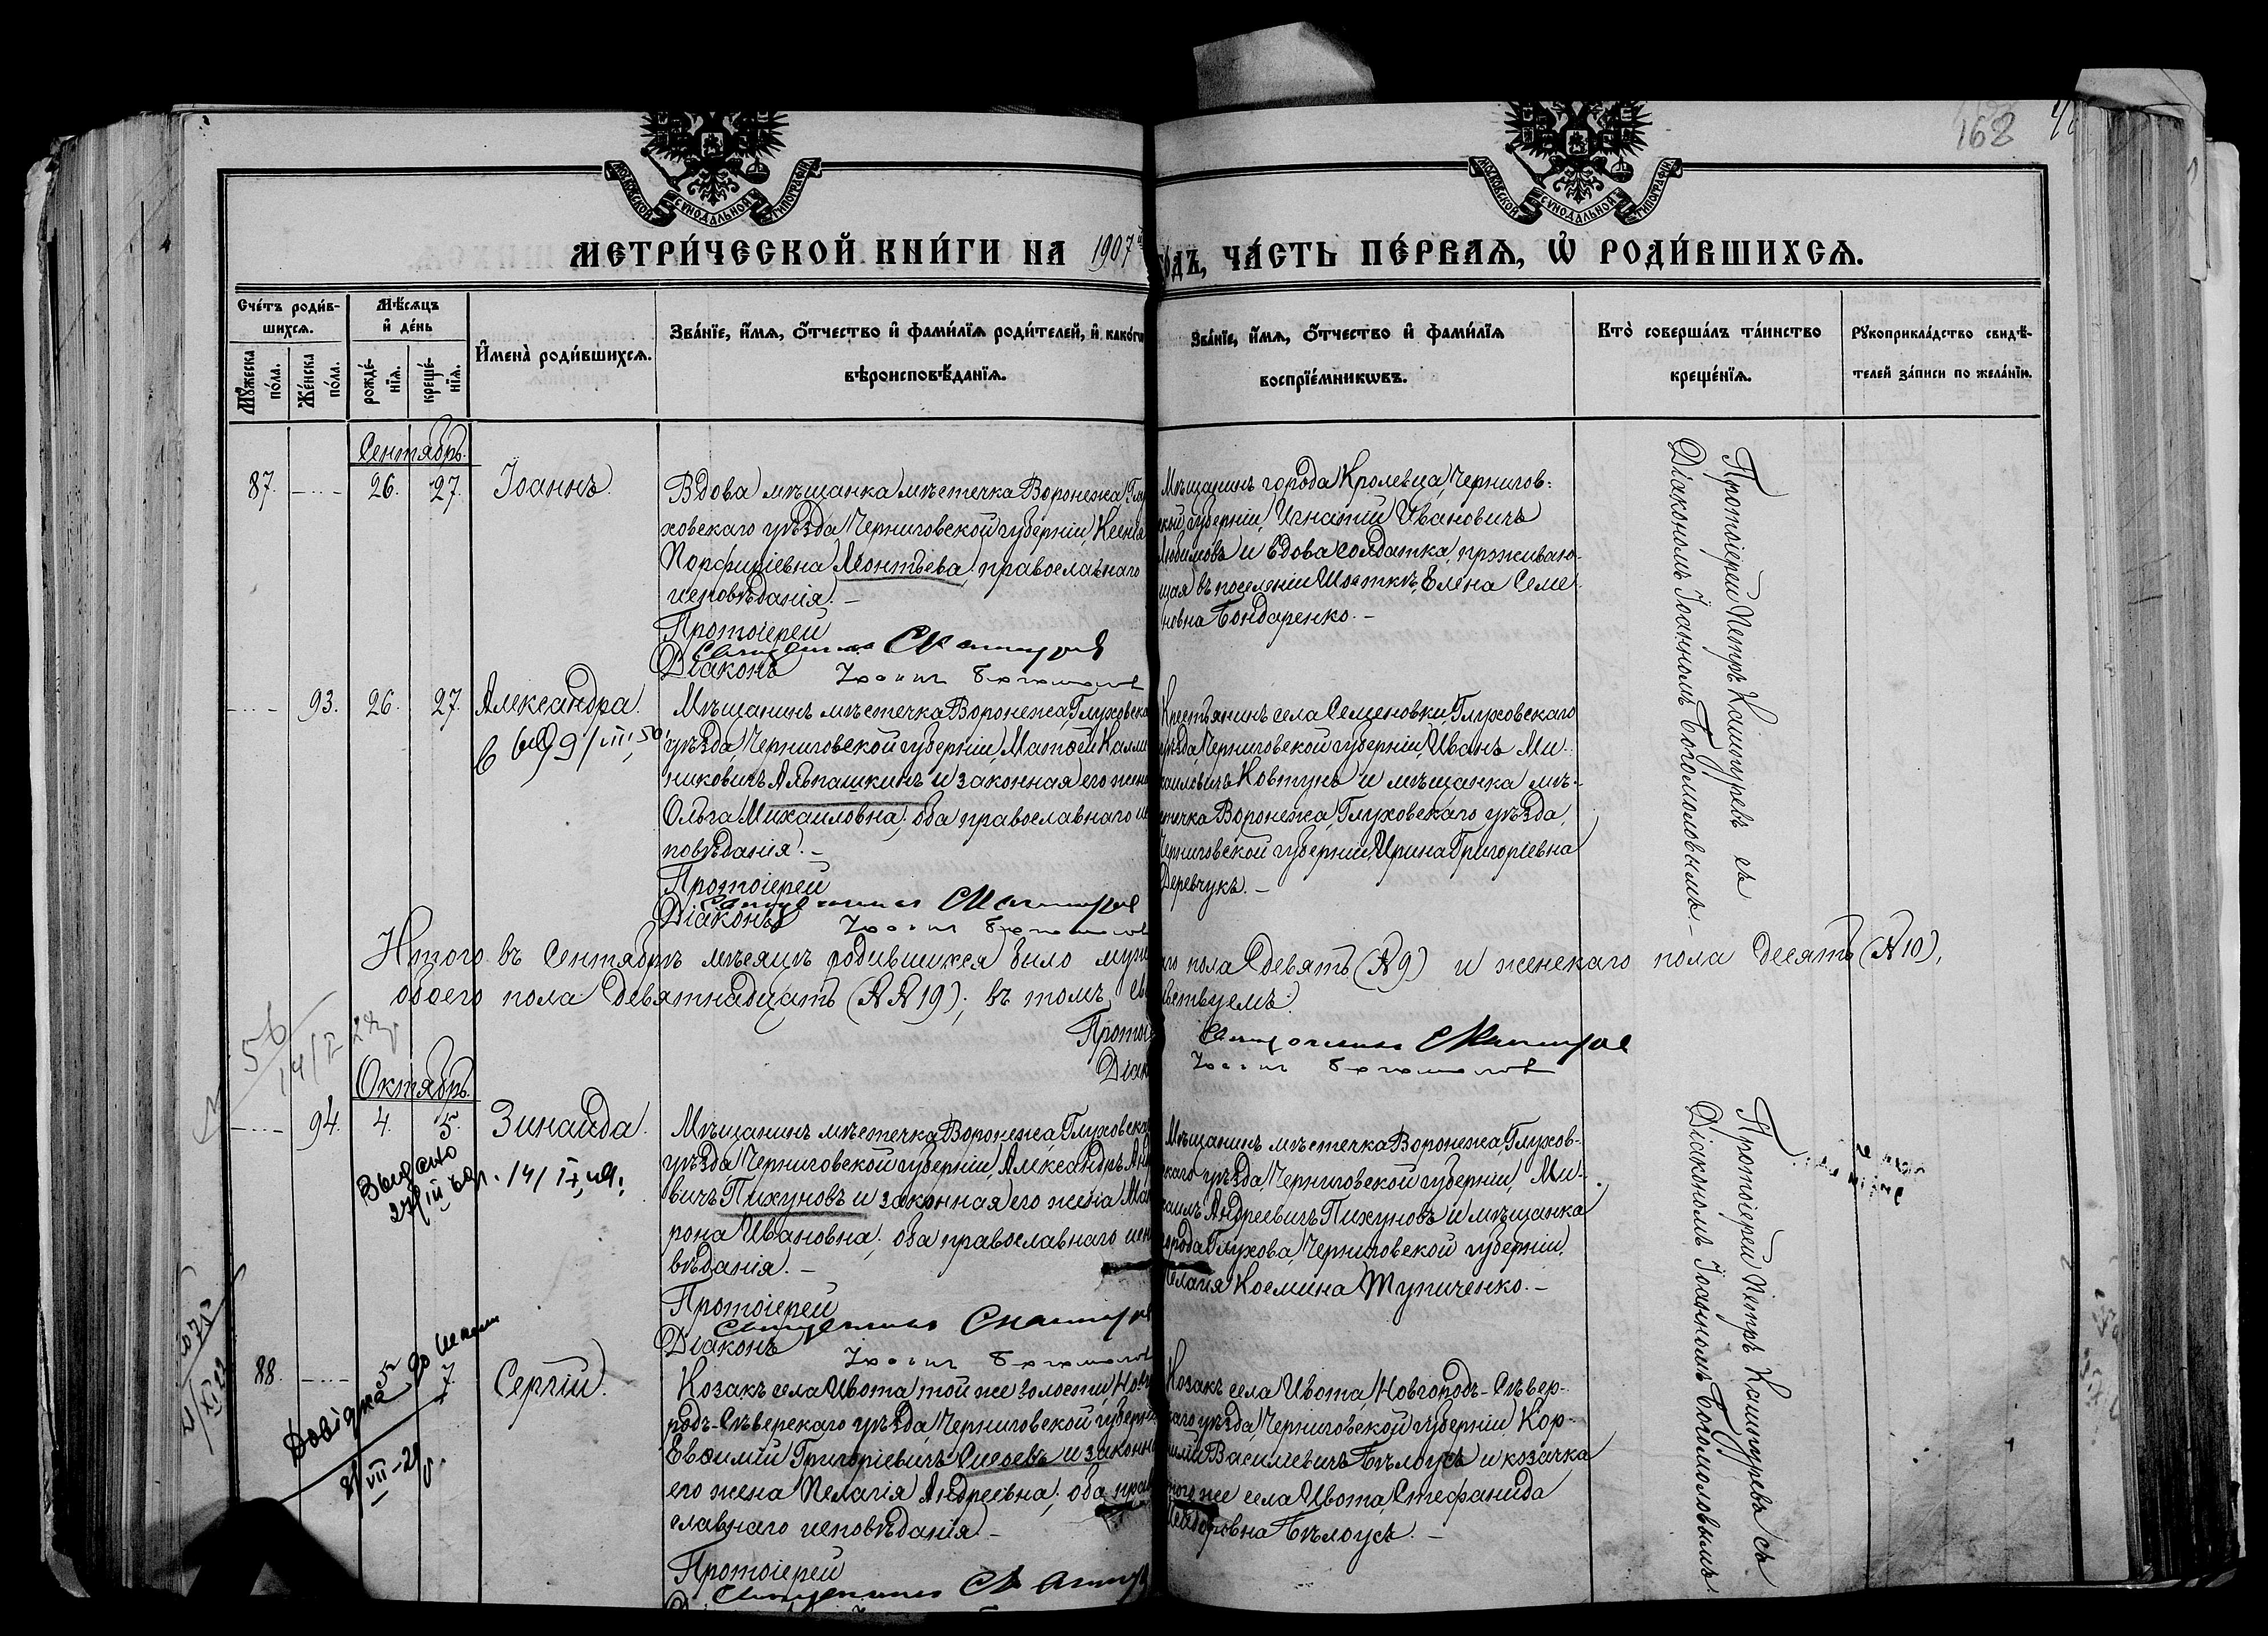 168
МОСКОВСКОЙ СѴНОДАЛЬНОЙ ТИПОГРАФІИ
МОСКОВСКОЙ СѴНОДАЛЬНОЙ ТИПОГРАФІИ
МЕТРИ́ЧЕСКОЙ КНИ́ГИ НА 1907 й
ГОДЪ, ЧА́СТЬ ПЕ́РВАѦ, Ѿ РОДИ́ВШИХСѦ.
Сче́тъ роди́в-
шихсѧ.
Мꙋ́жеска по́ла.
Же́нска по́ла.
Мѣ́сѧцъ
и҆ де́нь
рожде́-
нїѧ.
креще́-
нїѧ.
И҆мена̀ роди́вшихсѧ.
Зва́нїе, и҆́мѧ, ѻ҆́тчество и҆ фами́лїѧ роди́телей, и҆ како́гѡ
вѣроисповѣ́данїѧ.
Зва́нїе, и҆́мѧ, ѻ҆́тчество и҆ фами́лїѧ
воспрїе́мникѡвъ.
Кто̀ соверша́лъ та́инство
креще́нїѧ.
Рꙋкоприкла́дство свидѣ́-
телей за́писи по жела́нїю.
Сентябрь.
87.
26.
27.
Іоаннъ.
Вдова мѣщанка мѣстечка Воронежа, Глу
ховскаго уѣзда, Черниговской губерніи, Ксенія
Порфиріевна Леонтьева, православнаго
исповѣданія. –
Протоіерей
Діаконъ
Мѣщанинъ города Кролевца, Чернигов-
ской губерніи, Игнатій Ивановичъ
Любимовъ и вдова солдатка, проживаю-
щая въ поселеніи Шосткѣ, Елена Семе-
новна Бондаренко. –
Протоіерей Петръ Каишуревъ съ
Діакономъ Іоанномъ Богомоловымъ. –
93.
26.
27.
Александра.
Мѣщанинъ мѣстечка Воронежа, Глуховска
уѣзда, Черниговской губерніи, Матѳей Калли
никовичъ Альпашкинъ и законная его жена
Ольга Михаиловна; оба православнаго ис
повѣданія. –
Протоіерей
Діаконъ
Крестьянинъ села Семеновки, Глуховскаго
уѣзда, Черниговской губерніи, Иванъ Ми-
хаиловичъ Ковтунъ и мѣщанка мѣ-
стечка Воронежа, Глуховскаго уѣзда,
Черниговской губерніи, Ирина Григоріевна
Деревчукъ. –
Итого въ Сентябрѣ мѣсяцѣ родившихся было муж
го пола девять (№9) и женскаго пола десять (№10),
обоего пола девятнадцать (№№19); въ томъ сви
дѣтельствуемъ:
Протоі
Діак
Октябрь.
94.
4.
5.
Зинаида.
Мѣщанинъ мѣстечка Воронежа, Глуховска
уѣзда, Черниговской губерніи, Александръ Анд
вичъ Пихуновъ и законная его жена Мат
рона Ивановна; оба православнаго испо
вѣданія. –
Протоіерей
Діаконъ
Мѣщанинъ мѣстечка Воронежа, Глухов-
скаго уѣзда, Черниговской губерніи, Ми-
хаилъ Андреевичъ Пихуновъ и мѣщанка
города Глухова, Черниговской губерніи,
Пелагія Космина Тупиченко. –
Протоіерей Петръ Каишуревъ съ
Діакономъ Іоанномъ Богомоловымъ.
Видано
Довідка до школи
88.
5
7.
Сергій.
Козакъ села Ивота, той же волости, Новго
родъ-Сѣверскаго уѣзда, Черниговской губерніи
Евѳимій Григоріевичъ Сисоевъ и законна
его жена Пелагія Андреевна; оба право
славнаго исповѣданія. –
Протоіерей
Козакъ села Ивота, Новгородъ-Сѣвер-
скаго уѣзда, Черниговской губерніи, Кор-
нилій Василіевичъ Бѣлоусъ и козачка
того же села Ивота, Стефанида
Исидоровна Бѣлоусъ. –